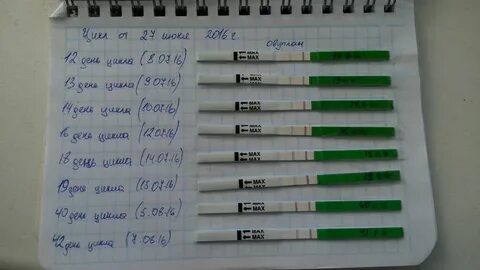 Цикл от 27 июня 2016 г.
овуплан
12 день цикла (8.07.16)
MAX
13 день цикла (9.07.16)
MAX
14 день цикла (10.07.16)
MAX
16 день цикла (12.07.16)
MAX
18 день цикла (14.07.16)
MAX
19 день цикла (15.07.16)
MAX
40 день цикла (5.08.16)
MAX
42 день цикла (7.08.16)
MAX